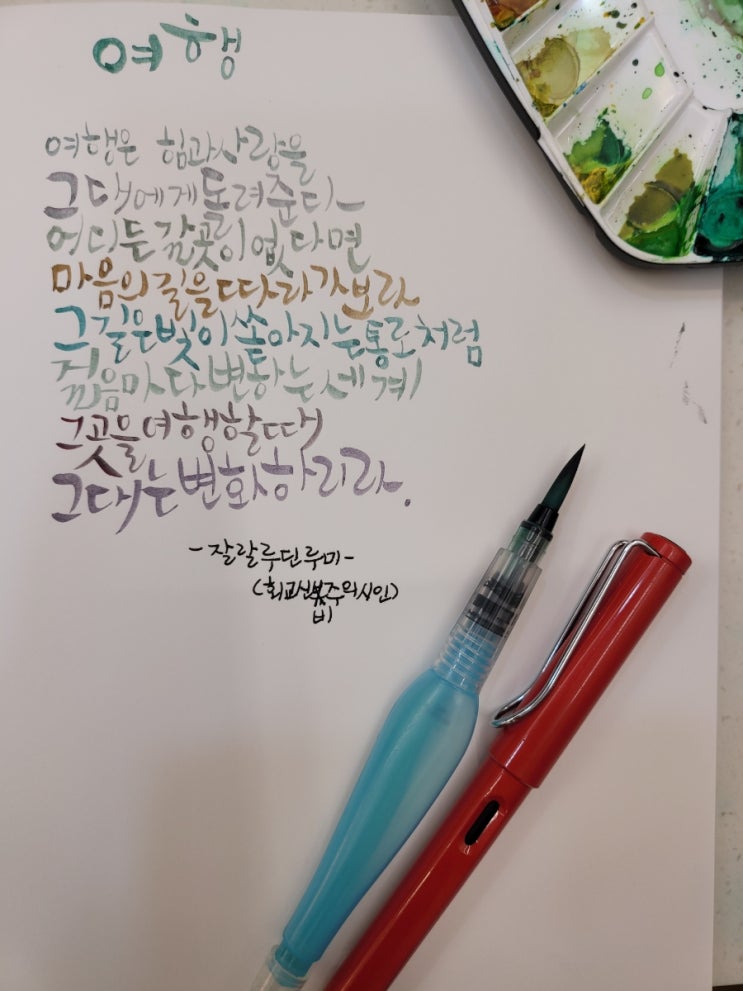 여행
여행은 힘과 사랑을
그대에게 돌려준다
어디든 갈곳이 없다면
마음의 길을 따라가보라
그 길은 빛이 쏟아지는 통로처럼
걸음마다 변하는 세계
그곳을 여행할때
그대는 변화하리라.
-잘랄루딘 루미-
(회교신비주의시인)